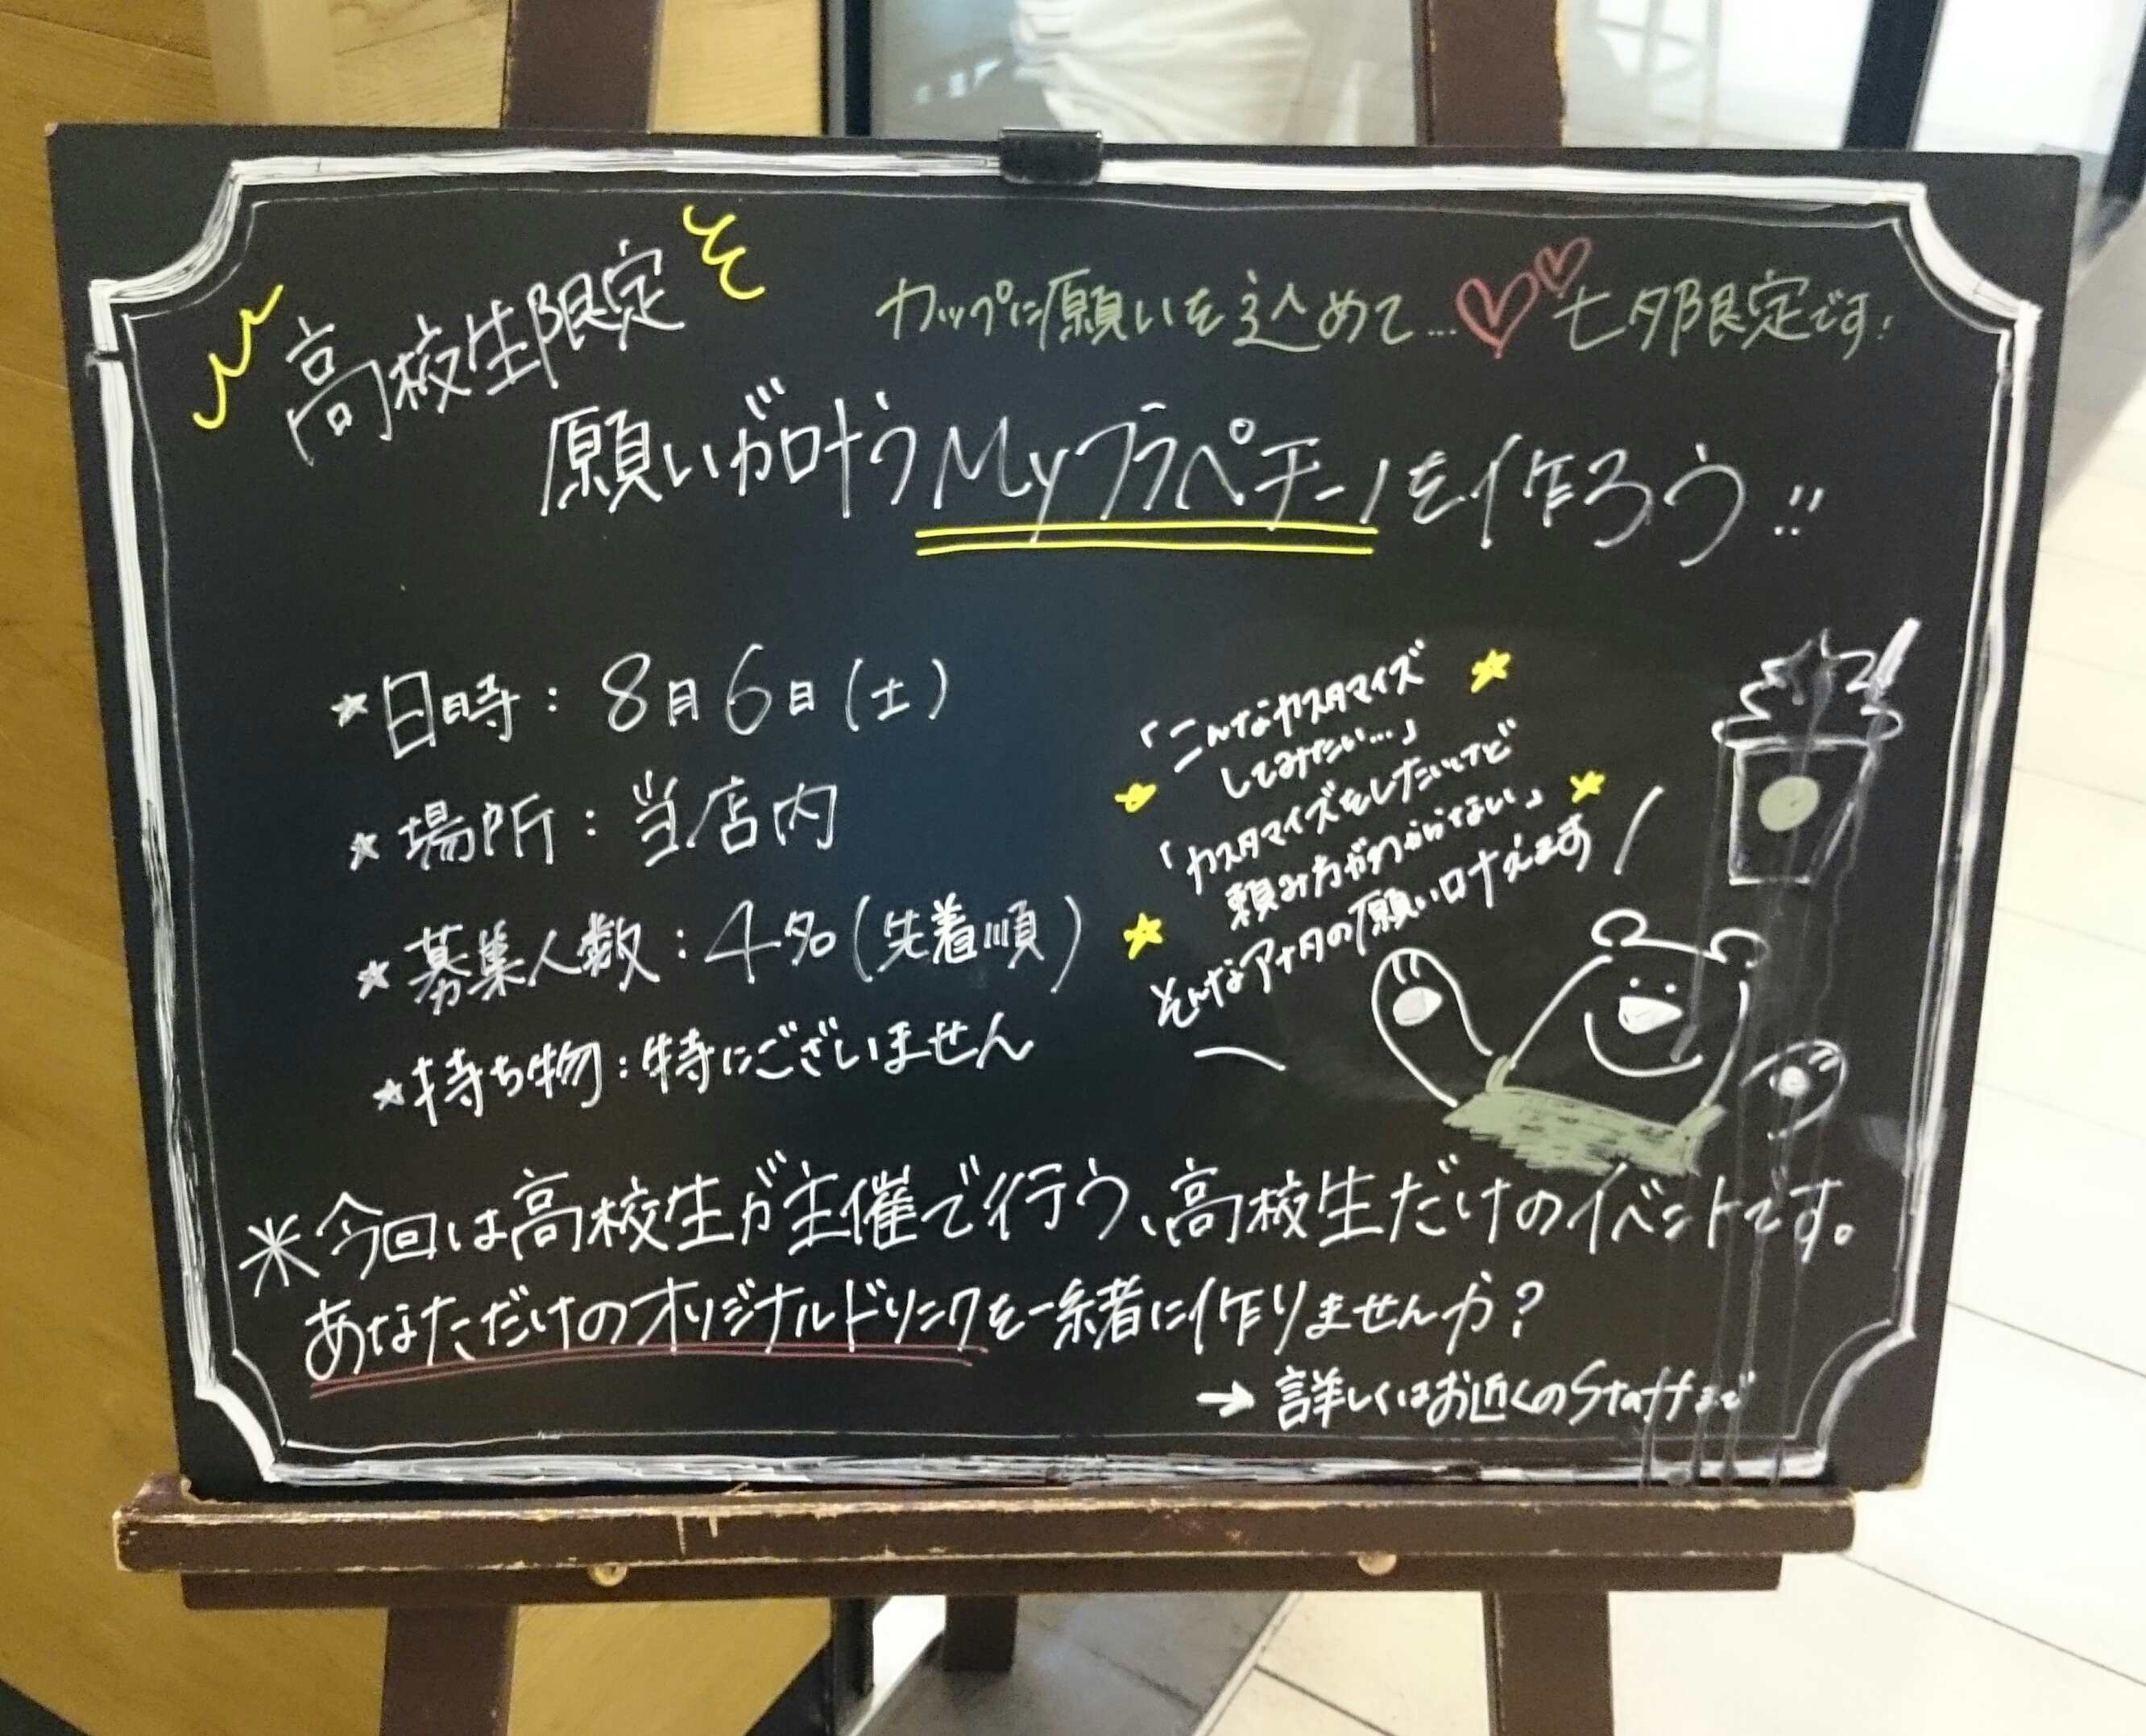 高校生限定
カップに願いを込めて…♡♡七夕限定です!
願いが叶うMyフラペチーノを作ろう!!
☆日時:8月6日(土)
☆場所:当店内
☆募集人数:4名(先着順)
☆持ち物:特にございません
「こんなカスタマイズ
してみたい…」
「カスタマイズをしたいけど
頼み方がわからない」
そんなアナタの願い叶えます
※今回は高校生が主催で行う、高校生だけのイベントです。
あなただけのオリジナルドリンクを一緒に作りませんか?
→詳しくはお近くのStaffまで